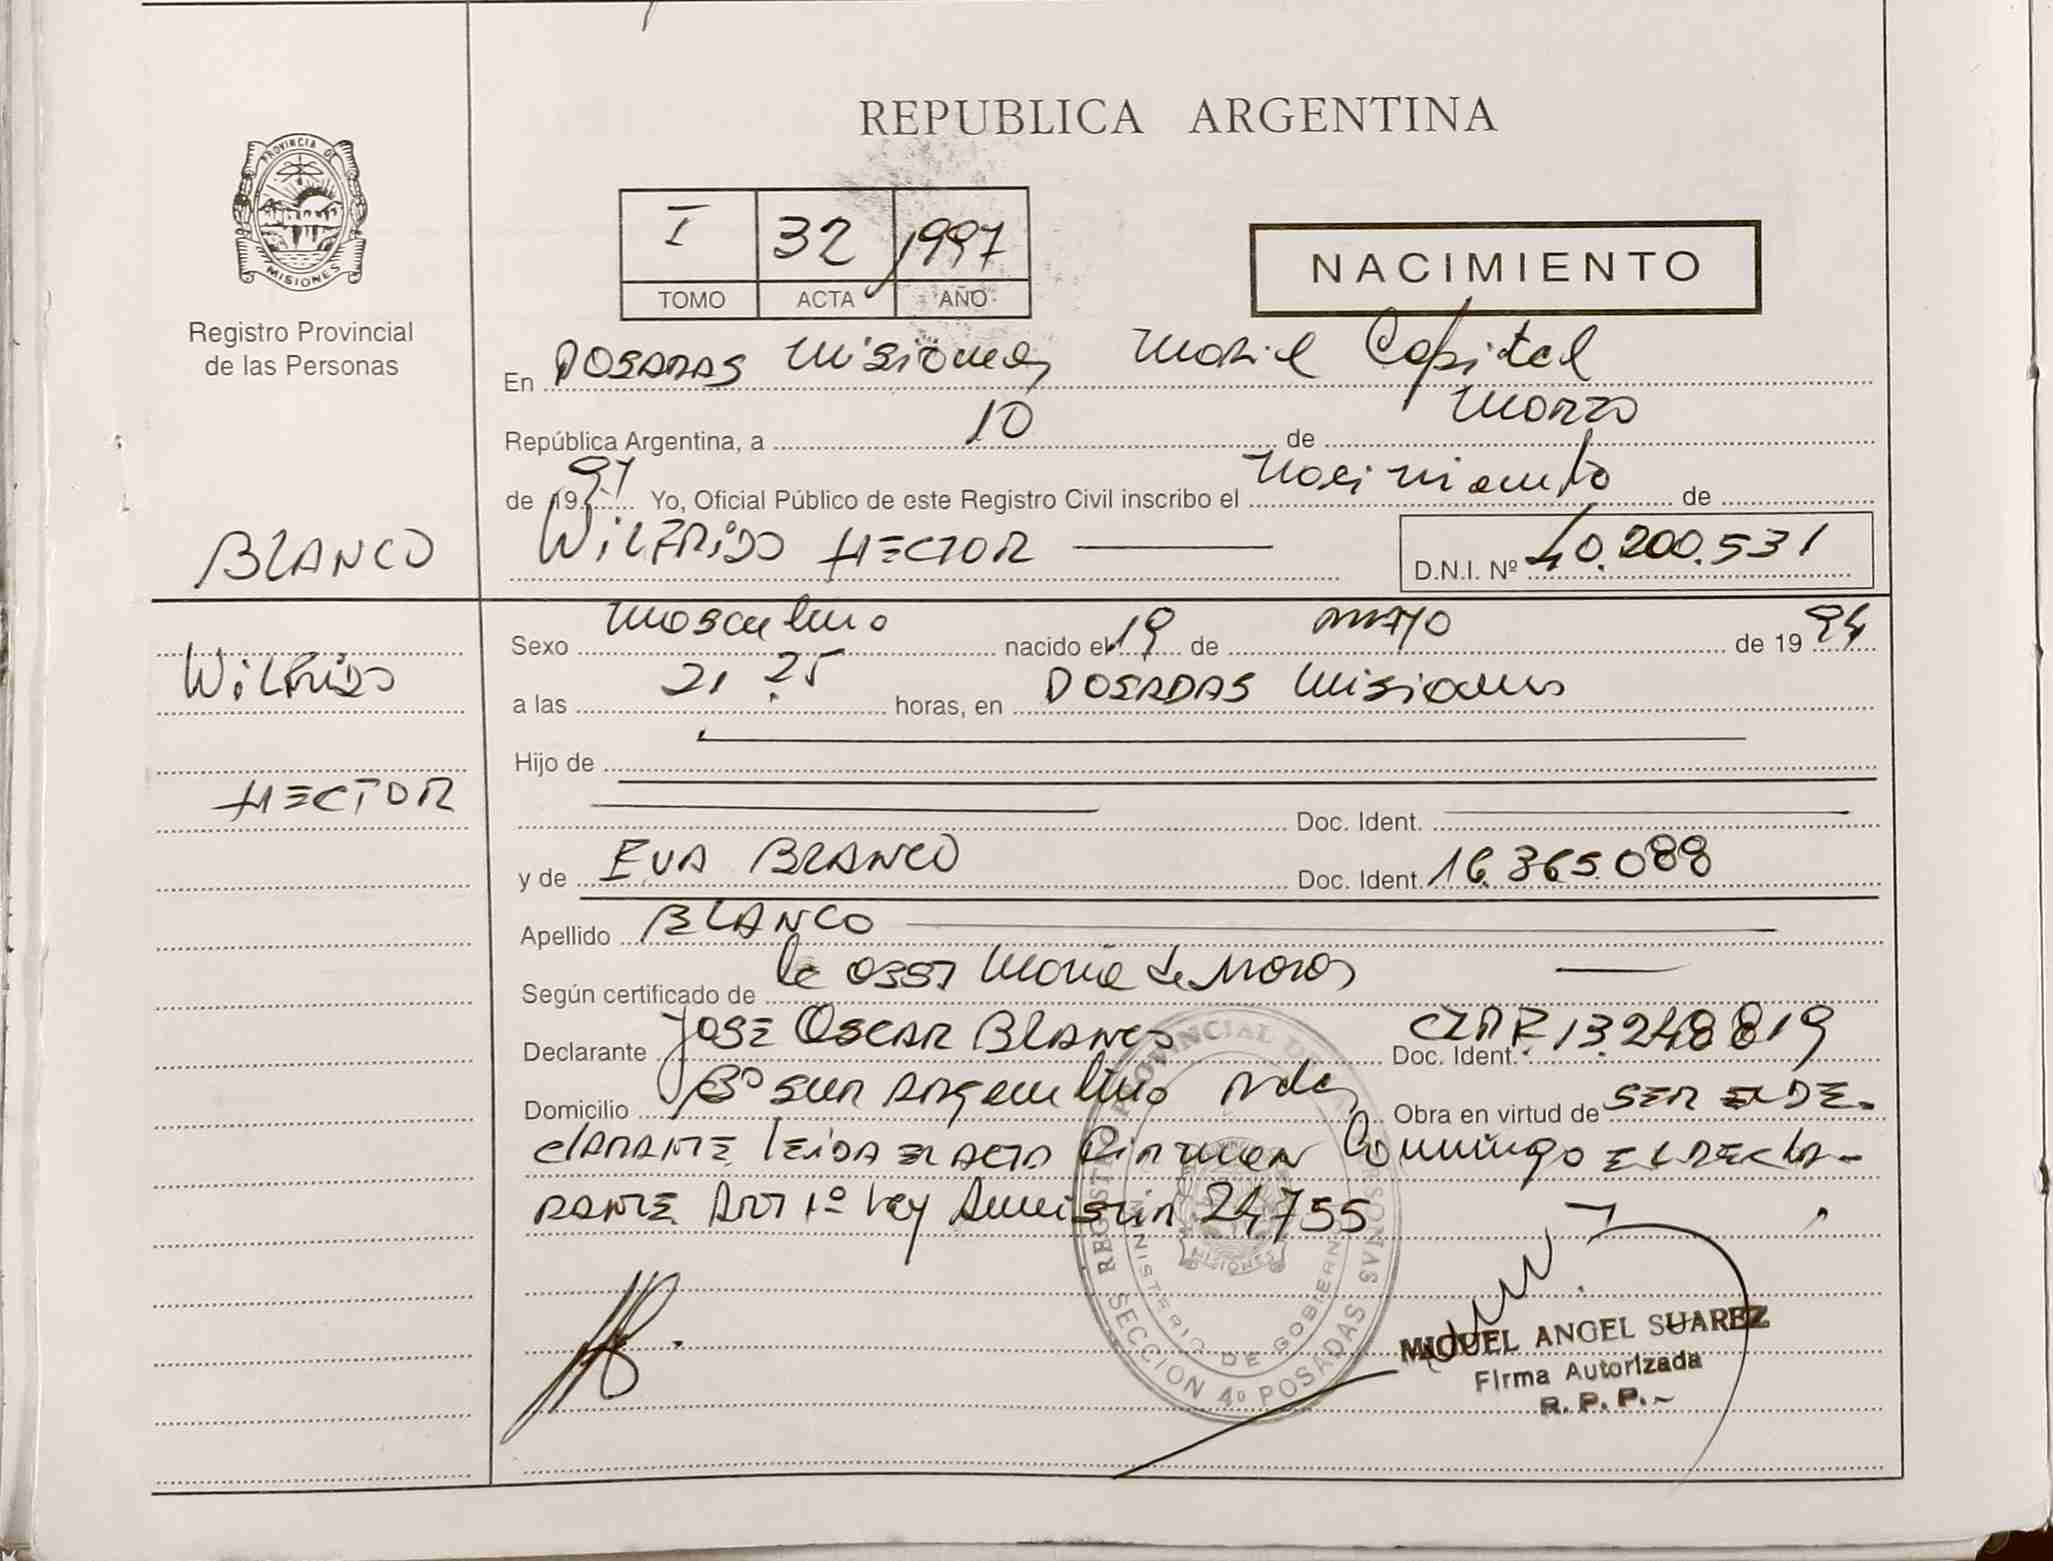 REPUBLICA ARGENTINA
PROVINCIA DE
MISIONES
Registro Provincial
de las Personas
I 32 1997
TOMO ACTA AÑO
NACIMIENTO
En POSADAS Misiones Capital
República Argentina, a 10 de Marzo
de 1997 Yo, Oficial Público de este Registro Civil inscribo el Nacimiento de
BLANCO
WILFRIDO HECTOR
D.N.I. Nº 40.200.531
WILFRIDO
HECTOR
Sexo Masculino nacido el 19 de MAYO de 1994
a las 21.25 horas, en POSADAS Misiones
Hijo de
Doc. Ident.
y de EVA BLANCO Doc. Ident. 16.365.088
Apellido BLANCO
Según certificado de la
Declarante JOSE OSCAR BLANCO Doc. Ident. 13.248819
Domicilio Bº SUR Argentino Obra en virtud de SER EL DE-
CLARANTE LEIDA EL ACTA EL DECLA-
RANTE ART 1º Ley 24755
REGISTRO PROVINCIAL DE LAS PERSONAS
MINISTERIO DE GOBIERNO
MISIONES
SECCION 4º POSADAS
MIGUEL ANGEL SUAREZ
Firma Autorizada
R. P. P.